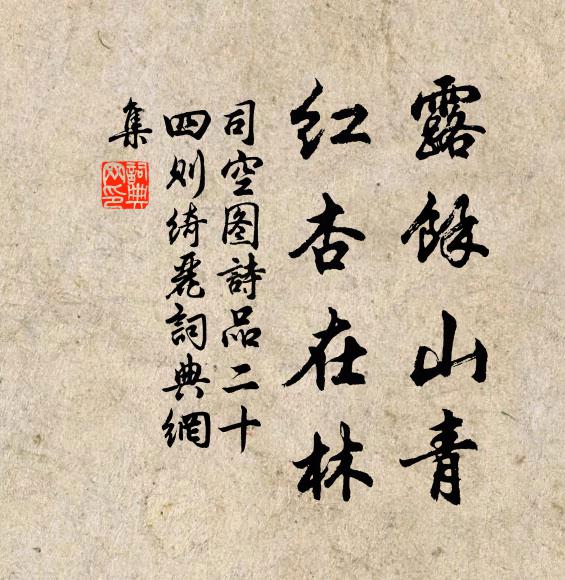 露餘山青
紅杏在林
司空图詩品二十
四则綺麗詞典網
集
詞典
网印